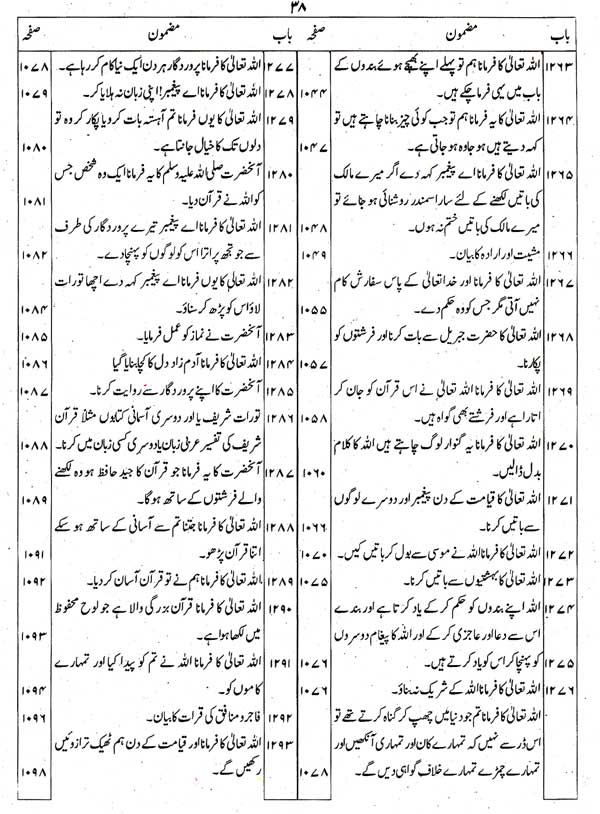 ۳۸
باب مضمون صفحہ
۱۲۶۳ اللہ تعالیٰ کا فرمانا ہم تو پہلے اپنے بھیجے ہوئے بندوں کے
باب میں یہی فرما چکے ہیں۔ ۱۰۴۴
۱۲۶۴ اللہ تعالیٰ کا یہ فرمانا ہم تو جب کوئی چیز بنانا چاہتے ہیں تو
کہہ دیتے ہیں ہو جا وہ ہو جاتی ہے۔ ۱۰۴۷
۱۲۶۵ اللہ تعالیٰ کا فرمانا اے پیغمبر کہہ دے اگر میرے مالک
کی باتیں لکھنے کے لئے سارا سمندر روشنائی ہو جائے تو
میرے مالک کی باتیں ختم نہ ہوں۔ ۱۰۴۸
۱۲۶۶ مشیت اور ارادہ کا بیان۔ ۱۰۴۹
۱۲۶۷ اللہ تعالیٰ کا فرمانا اور خدا تعالیٰ کے پاس سفارش کام
نہیں آتی مگر جس کو وہ حکم دے۔ ۱۰۵۵
۱۲۶۸ اللہ تعالیٰ کا حضرت جبریل سے بات کرنا اور فرشتوں کو
پکارنا۔ ۱۰۵۷
۱۲۶۹ اللہ تعالیٰ کا فرمانا اللہ تعالیٰ نے اس قرآن کو جان کر
اتارا ہے اور فرشتے بھی گواہ ہیں۔ ۱۰۵۸
۱۲۷۰ اللہ تعالیٰ کا فرمانا یہ گنوار لوگ چاہتے ہیں اللہ کا کلام
بدل ڈالیں۔ ۱۰۶۰
۱۲۷۱ اللہ تعالیٰ کا قیامت کے دن پیغمبر اور دوسرے لوگوں
سے باتیں کرنا۔ ۱۰۶۶
۱۲۷۲ اللہ تعالیٰ کا فرمانا اللہ نے موسی سے بول کر باتیں کیں۔ ۱۰۷۰
۱۲۷۳ اللہ تعالیٰ کا بہشتیوں سے باتیں کرنا۔ ۱۰۷۵
۱۲۷۴ اللہ اپنے بندوں کو حکم کر کے یاد کرتا ہے اور بندے
اس سے دعا اور عاجزی کر کے اور اللہ کا پیغام دوسروں
۱۲۷۵ کو پہنچا کر اس کو یاد کرتے ہیں۔ ۱۰۷۶
۱۲۷۶ اللہ تعالیٰ کا فرمانا اللہ کے شریک نہ بناؤ۔ ۱۰۷۶
اللہ تعالیٰ کا فرمانا تم جو دنیا میں چھپ کر گناہ کرتے تھے تو
اس ڈر سے نہیں کہ تمہارے کان اور تمہاری آنکھیں اور
تمہارے چمڑے تمہارے خلاف گواہی دیں گے۔ ۱۰۷۸
باب مضمون صفحہ
۱۲۷۷ اللہ تعالیٰ کا فرمانا پروردگار ہر دن ایک نیا کام کر رہا ہے۔ ۱۰۷۸
۱۲۷۸ اللہ تعالیٰ کا فرمانا اے پیغمبر! اپنی زبان نہ ہلایا کر۔ ۱۰۷۹
۱۲۷۹ اللہ تعالیٰ کا یوں فرمانا تم آہستہ بات کرو یا پکار کر وہ تو
دلوں تک کا خیال جانتا ہے۔ ۱۰۸۰
۱۲۸۰ آنحضرت صلی اللہ علیہ وسلم کا یہ فرمانا ایک وہ شخص جس
کو اللہ نے قرآن دیا۔ ۱۰۸۱
۱۲۸۱ اللہ تعالیٰ کا فرمانا اے پیغمبر تیرے پروردگار کی طرف
سے جو تجھ پر اترا اس کو لوگوں کو پہنچا دے۔ ۱۰۸۲
۱۲۸۲ اللہ تعالیٰ کا یوں فرمانا اے پیغمبر کہہ دے اچھا تورات
لاؤ اس کو پڑھ کر سناؤ۔ ۱۰۸۴
۱۲۸۳ آنحضرت نے نماز کو عمل فرمایا۔ ۱۰۸۵
۱۲۸۴ اللہ تعالیٰ کا فرمانا آدم زاد دل کا کچا بنایا گیا ۱۰۸۶
۱۲۸۵ آنحضرت کا اپنے پروردگار سے روایت کرنا۔ ۱۰۸۷
۱۲۸۶ تورات شریف یا اور دوسری آسمانی کتابوں مثلاً قرآن
شریف کی تفسیر عربی زبان یا دوسری کسی زبان میں کرنا۔ ۱۰۸۸
۱۲۸۷ آنحضرت کا یہ فرمانا جو قرآن کا جید حافظ ہو وہ لکھنے
والے فرشتوں کے ساتھ ہو گا۔ ۱۰۸۹
۱۲۸۸ اللہ تعالیٰ کا فرمانا جتنا تم سے آسانی کے ساتھ ہو سکے
اتنا قرآن پڑھو۔ ۱۰۹۱
۱۲۸۹ اللہ تعالیٰ کا فرمانا ہم نے تو قرآن آسان کر دیا۔ ۱۰۹۲
۱۲۹۰ اللہ تعالیٰ کا فرمانا قرآن بزرگی والا ہے جو لوح محفوظ
میں لکھا ہوا ہے۔ ۱۰۹۳
۱۲۹۱ اللہ تعالیٰ کا فرمانا اللہ نے تم کو پیدا کیا اور تمہارے
کاموں کو۔ ۱۰۹۴
۱۲۹۲ فاجر و منافق کی قرات کا بیان۔ ۱۰۹۶
۱۲۹۳ اللہ تعالیٰ کا فرمانا اور قیامت کے دن ہم ٹھیک ترازوئیں
رکھیں گے۔ ۱۰۹۸